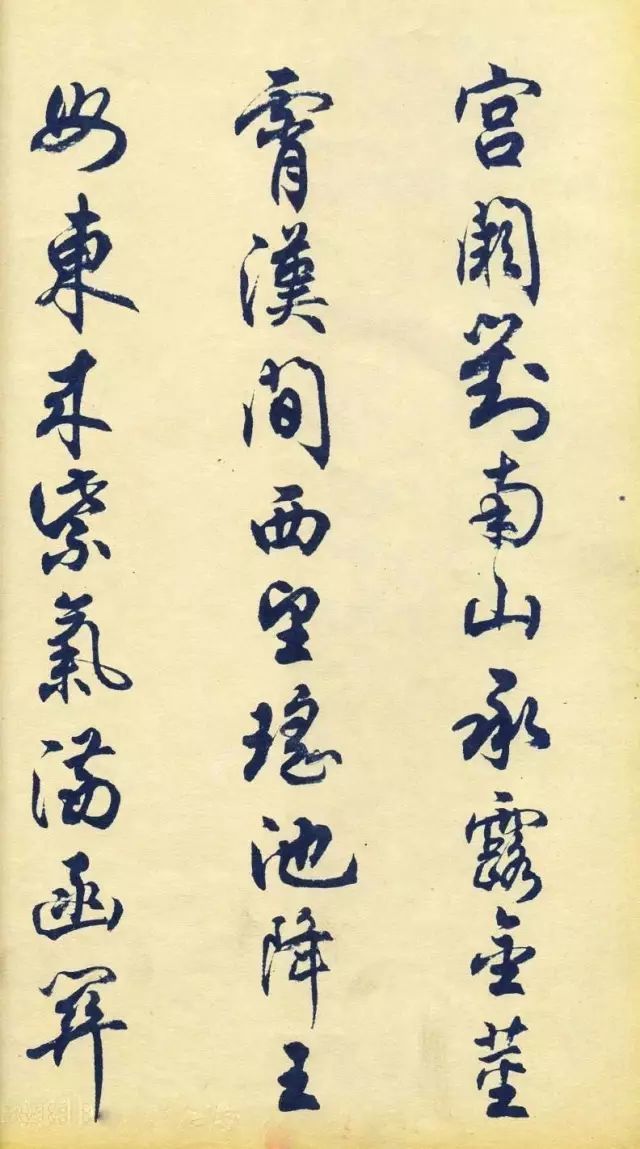 宫阙對南山承露金莖
霄漢間西望瑤池降王
母東来紫氣满函關